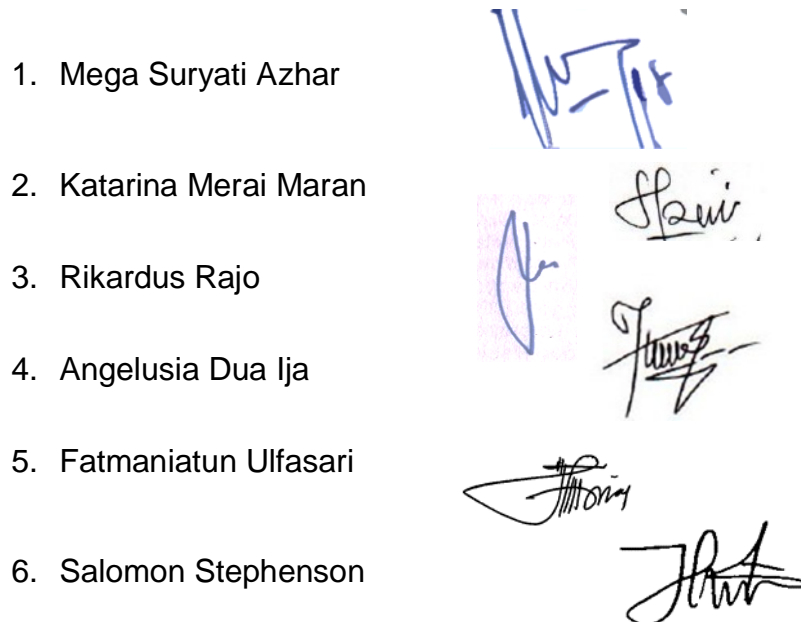 1. Mega Suryati Azhar
2. Katarina Merai Maran
3. Rikardus Rajo
4. Angelusia Dua Ija
5. Fatmaniatun Ulfasari
6. Salomon Stephenson